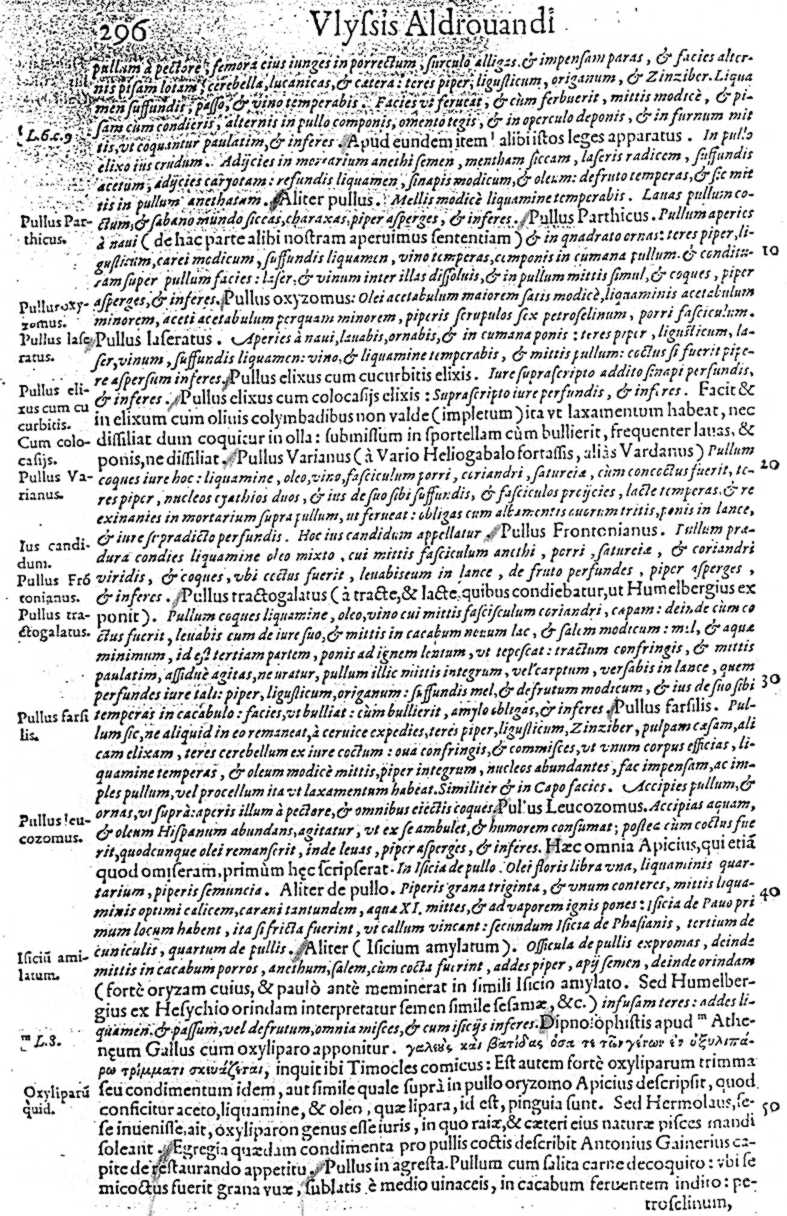 296
Vlyssis Aldrouandi
pullum à pectore, femora eius iunges in porrectum, surculo alligas, & impensam paras, & facies alter-
nis pisam lotam, cerebella, lucanicas, & cætera: teres piper, ligusticum, origanum, & Zinziber. Liqua
men suffundis, passo, & vino temperabis. Facies vt ferueat, & cùm ferbuerit, mittis modicè, & pi-
sam cùm condieris, alternis in pullo componis, omento tegis, & in operculo deponis, & in furnum mit
L.6.c.9
tis, vt coquantur paulatim, & inferes. Apud eundem item alibi istos leges apparatus. In pullo
elixo ius crudum. Adijcies in mortarium anethi semen, mentham siccam, laseris radicem, suffundis
acetum, adijcies caryotam: refundis liquamen, sinapis modicum, & oleum: defruto temperas, & sic mit
tis in pullum anethatam. Aliter pullus. Mellis modicè liquamine temperabis. Lauas pullum co-
Pullus Par-
thicus.
ctum, & sabano mundo siccas, charaxas, piper asperges, & inferes. Pullus Parthicus. Pullum aperies
à naui (de hac parte alibi nostram aperuimus sententiam) & in quadrato ornas: teres piper, li-
10
gusticum, carei modicum, suffundis liquamen, vino temperas, componis in cumana pullum, & conditu-
ram super pullum facies: laser, & vinum inter illas dissoluis, & in pullum mittis simul, & coques, piper
Pullus oxy-
zomus.
asperges, & inferes. Pullus oxyzomus: Olei acetabulum maiorem satis modicè, liquaminis acetabulum
minorem, aceti acetabulum perquam minorem, piperis scrupulos sex petroselinum, porri fasciculum.
Pullus lase
ratus.
Pullus laseratus. Aperies à naui, lauabis, ornabis, & in cumana ponis: teres piper, ligusticum, la-
ser, vinum, suffundis liquamen: vino, & liquamine temperabis, & mittis pullum: coctus si fuerit pipe-
re aspersum inferes. Pullus elixus cum cucurbitis elixis. Iure suprascripto addito sinapi perfundis,
Pullus eli-
xus cum cu
curbitis.
& inferes. Pullus elixus cum colocasijs elixis: Suprascripto iure perfundis, & inferes. Facit &
in elixum cum oliuis colymbadibus non valde (impletum) ita vt laxamentum habeat, nec
Cum colo-
casijs.
dissiliat dum coquitur in olla: submissum in sportellam cùm bullierit, frequenter lauas, &
ponis, ne dissiliat. Pullus Varianus (à Vario Heliogabalo fortassis, aliàs Vardanus) Pullum
Pullus Va-
rianus.
20
coques iure hoc: liquamine, oleo, vino, fasciculum porri, coriandri, satureiæ, cùm concoctus fuerit, te-
res piper, nucleos cyathios duos, & ius de suo sibi suffundis, & fasciculos proijcies, lacte temperas, & re
exinanies in mortarium supra pullum, ut ferueat: obligas cum albamentis ouorum tritis, ponis in lance,
& iure supradicto perfundis. Hoc ius candidum appellatur. Pullus Frontonianus. Pullum præ-
Ius candi-
dum.
dura condies liquamine oleo mixto, cui mittis fasciculum anethi, porri, satureiæ, & coriandri
Pullus Frō
tonianus.
viridis, & coques, vbi coctus fuerit, leuabis eum in lance, de fruto perfundes, piper asperges,
& inferes. Pullus tractogalatus (à tracte, & lacte, quibus condiebatur, ut Humelbergius ex
Pullus tra-
ctogalatus.
ponit). Pullum coques liquamine, oleo, vino cui mittis fascisculum coriandri, capam: deinde cùm co
ctus fuerit, leuabis eum de iure suo, & mittis in cacabum nouum lac, & salem modicum: mel, & aquæ
minimum, id est tertiam partem, ponis ad ignem lentum, vt tepescat: tractum confringis, & mittis
paulatim, assiduè agitas, ne uratur, pullum illic mittis integrum, vel carptum, versabis in lance, quem
perfundes iure tali: piper, ligusticum, origanum: suffundis mel, & defrutum modicum, & ius de suo sibi
30
Pullus farsi
lis.
temperas in cacabulo: facies, vt bulliat: cùm bullierit, amylo obligas, & inferes. Pullus farsilis. Pul-
lum sic, ne aliquid in eo remaneat, à ceruice expedies, teres piper, ligusticum, Zinziber, pulpam cæsam, ali
cam elixam, teres cerebellum ex iure coctum: oua confringis, & commisces, vt vnum corpus efficias, li-
quamine temperas, & oleum modicè mittis, piper integrum, nucleos abundantes, fac impensam, ac im-
ples pullum, vel procellum ita vt laxamentum habeat. Similiter & in Capo facies. Accipies pullum, &
ornas, vt suprà: aperis illum à pectore, & omnibus eiectis coques. Pullus Leucozomus. Accipias aquam,
Pullus leu-
cozomus.
& oleum Hispanum abundans, agitatur, vt ex se ambulet, & humorem consumat; postea cùm coctus fue
rit, quodcunque olei remanserit, inde leuas, piper asperges, & inferes. Hæc omnia Apicius, qui etiā
quod omiseram, primùm hęc scripserat. In Isicia de pullo. Olei floris libra vna, liquaminis quar-
tarium, piperis semuncia. Aliter de pullo. Piperis grana triginta, & vnum conteres, mittis liqua-
40
minis optimi calicem, careni tantundem, aquæ XI. mittes, & ad vaporem ignis pones: Isicia de Pauo pri
mum locum habent, ita si fricta fuerint, vt callum vincant: secundum Isicia de Phasianis, tertium de
cuniculis, quartum de pullis. Aliter (Isicium amylatum). Ossicula de pullis expromas, deinde
Isiciū ami-
latum.
mittis in cacabum porros, anethum, salem, cùm cocta fuerint, addes piper, apij semen, deinde orindam
(fortè oryzam cuius, & paulò antè meminerat in simili Isicio amylato. Sed Humelber-
gius ex Hesychio orindam interpretatur semen simile sesamæ, &c.) infusam teres: addes li-
quamen, & passum, vel defrutum, omnia misces, & cum isicijs inferes. Dipnosophistis apud ᵐ Athe-
ᵐ L.8.
nęum Gallus cum oxyliparo apponitur. γαλεοὺς καὶ βατίδας ὅσα τε τῶν γένων ἐν ὀξυλιπά-
ρῳ τρίμματι σκευάζεται, inquit ibi Timocles comicus: Est autem fortè oxyliparum trimma
Oxyliparū
quid.
seu condimentum idem, aut simile quale suprà in pullo oryzomo Apicius descripsit, quod
conficitur aceto, liquamine, & oleo, quæ lipara, id est, pinguia sunt. Sed Hermolaus, se-
50
se inuenisse, ait, oxyliparon genus esse iuris, in quo raiæ, & cæteri eius naturæ pisces mandi
soleant. Egregia quædam condimenta pro pullis coctis describit Antonius Gainerius ca-
pite de restaurando appetitu. Pullus in agresta. Pullum cum salita carne decoquito: vbi se
micoctus fuerit grana vuæ, sublatis è medio uinaceis, in cacabum feruentem indito: pe-
troselinum,